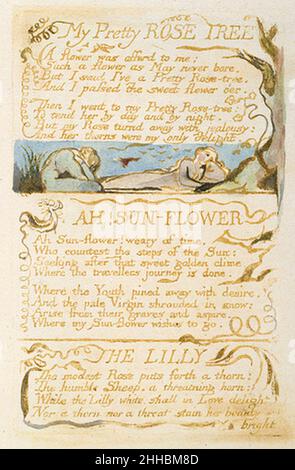 My Pretty ROSE TREE
A flower was offerd to me:
Such a flower as May never bore.
But I said I've a Pretty Rose-tree.
And I passed the sweet flower o'er.
Then I went to my Pretty Rose-tree:
To tend her by day and by night.
But my Rose turnd away with jealousy:
And her thorns were my only delight.
AH! SUN-FLOWER
Ah Sun-flower! weary of time.
Who countest the steps of the Sun:
Seeking after that sweet golden clime
Where the travellers journey is done.
Where the Youth pined away with desire,
And the pale Virgin shrouded in snow:
Arise from their graves and aspire,
Where my Sun-flower wishes to go.
THE LILLY
The modest Rose puts forth a thorn:
The humble Sheep, a threatning horn:
While the Lilly white, shall in Love delight,
Nor a thorn nor a threat stain her beauty
bright
alamy
Image ID: 2HHBM8D
www.alamy.com